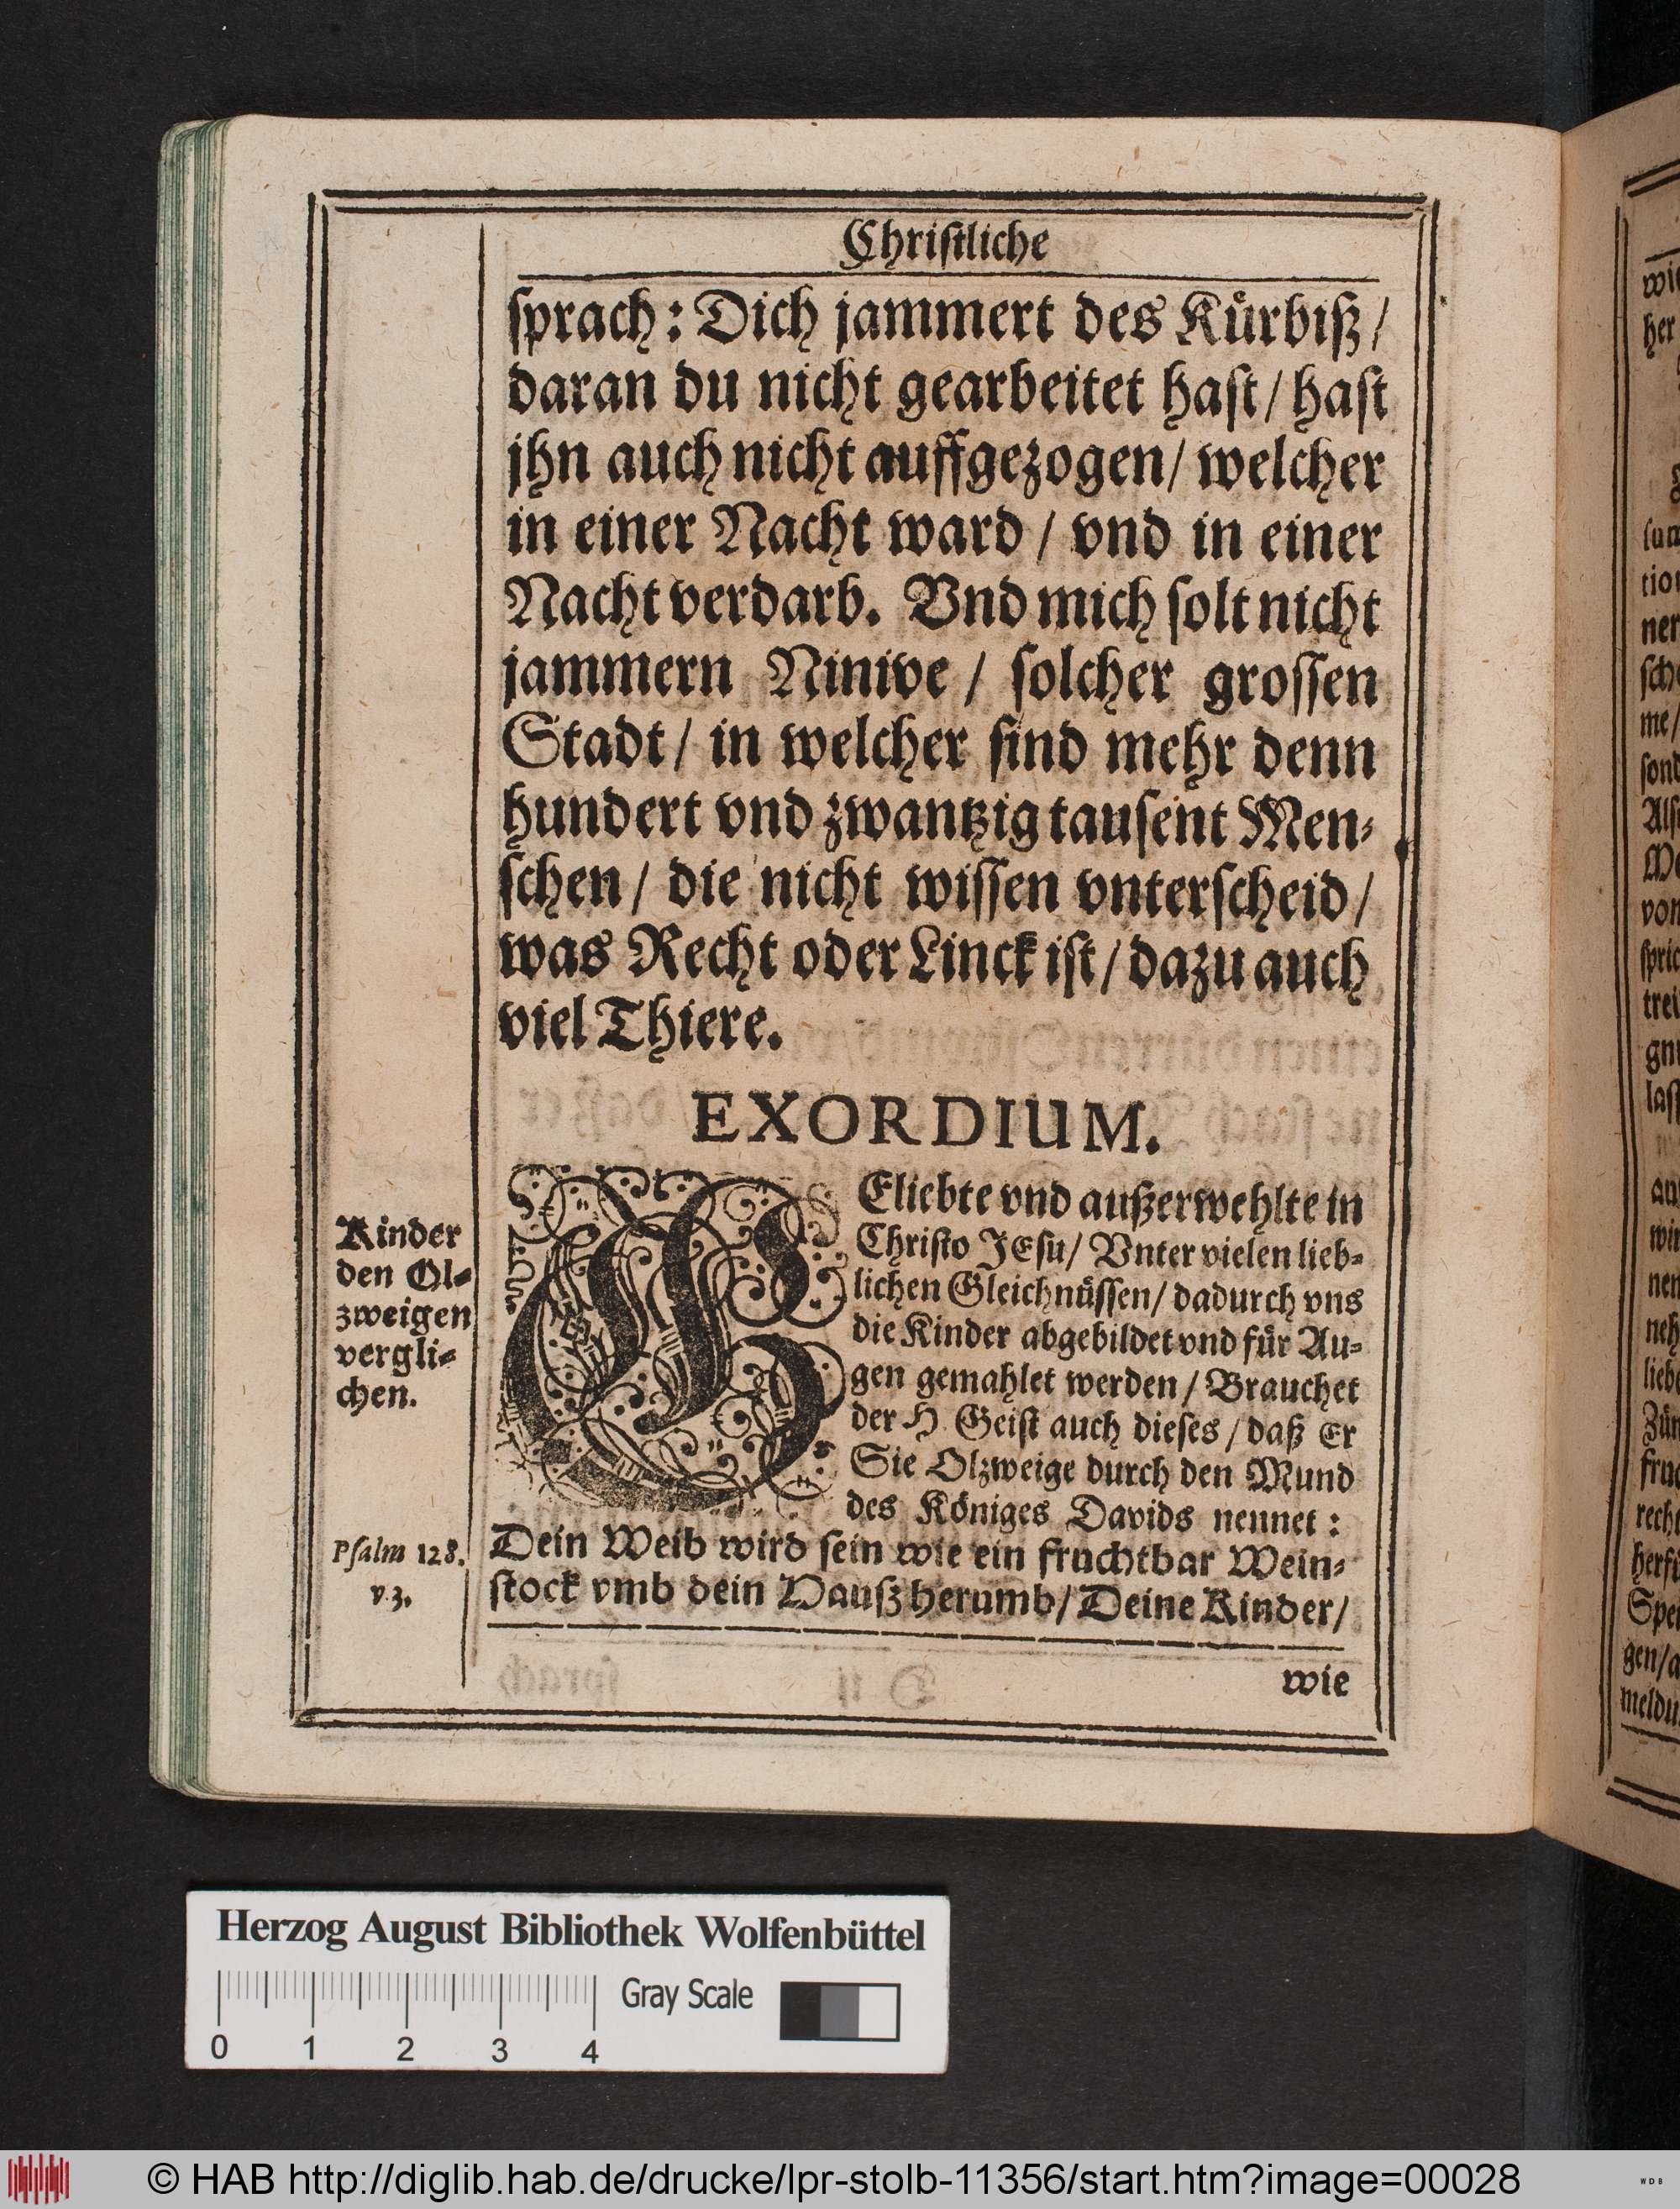 Christliche
sprach: Dich jammert des Kürbiß /
daran du nicht gearbeitet hast / hast
jhn auch nicht auffgezogen / welcher
in einer Nacht ward / vnd in einer
Nacht verdarb. Vnd mich solt nicht
jammern Ninive / solcher grossen
Stadt / in welcher sind mehr denn
hundert vnd zwantzig tausent Men-
schen / die nicht wissen vnterscheid /
was Recht oder Linck ist / dazu auch
viel Thiere.
EXORDIUM.
GEliebte vnd außerwehlte in
Christo JEsu / Vnter vielen lieb-
lichen Gleichnüssen / dadurch vns
die Kinder abgebildet vnd für Au-
gen gemahlet werden / Brauchet
der H. Geist auch dieses / daß Er
Sie Olzweige durch den Mund
des Königes Davids nennet :
Dein Weib wird sein wie ein fruchtbar Wein-
stock vmb dein Hauß herumb / Deine Kinder /
wie
Kinder
den Ol-
zweigen
vergli-
chen.
Psalm 128.
v. 3.
wie
her
tio
ner
sche
me /
sond
Als
von
spric
trei
lieb
fruc
recht
Spei
gen / a
meldu
Herzog August Bibliothek Wolfenbüttel
0 1 2 3 4
Gray Scale
© HAB http://diglib.hab.de/drucke/lpr-stolb-11356/start.htm?image=00028
WDB